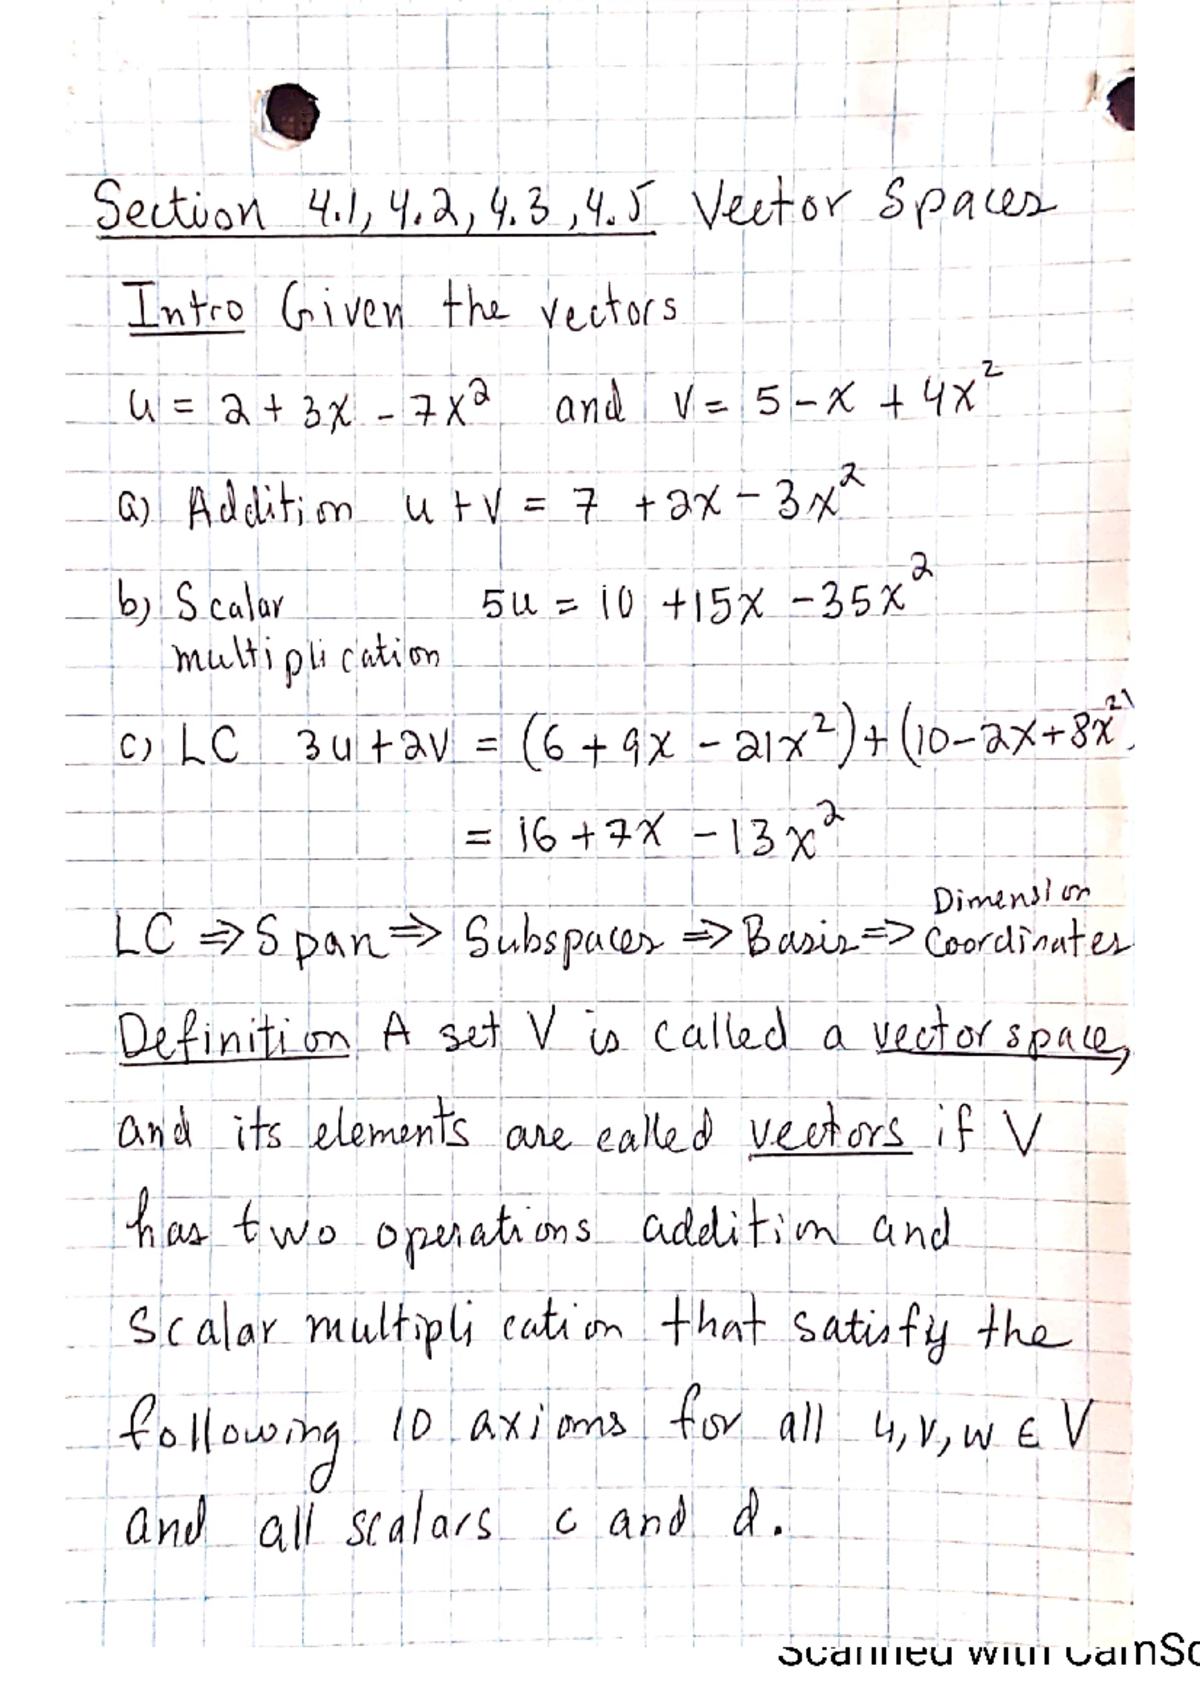 Section 4.1, 4.2, 4.3, 4.5 Vector Spaces
Intro Given the vectors
u = 2 + 3x - 7x² and v = 5 - x + 4x²
a) Addition u + v = 7 + 2x - 3x²
b) Scalar 5u = 10 + 15x - 35x²
multiplication
c) LC 3u + 2v = (6 + 9x - 21x²) + (10 - 2x + 8x²)
= 16 + 7x - 13x²
Dimension
LC ⇒ Span ⇒ Subspaces ⇒ Basis ⇒ Coordinates
Definition A set V is called a vector space,
and its elements are called vectors if V
has two operations addition and
scalar multiplication that satisfy the
following 10 axioms for all u, v, w ∈ V
and all scalars c and d.
Scanned with CamSc